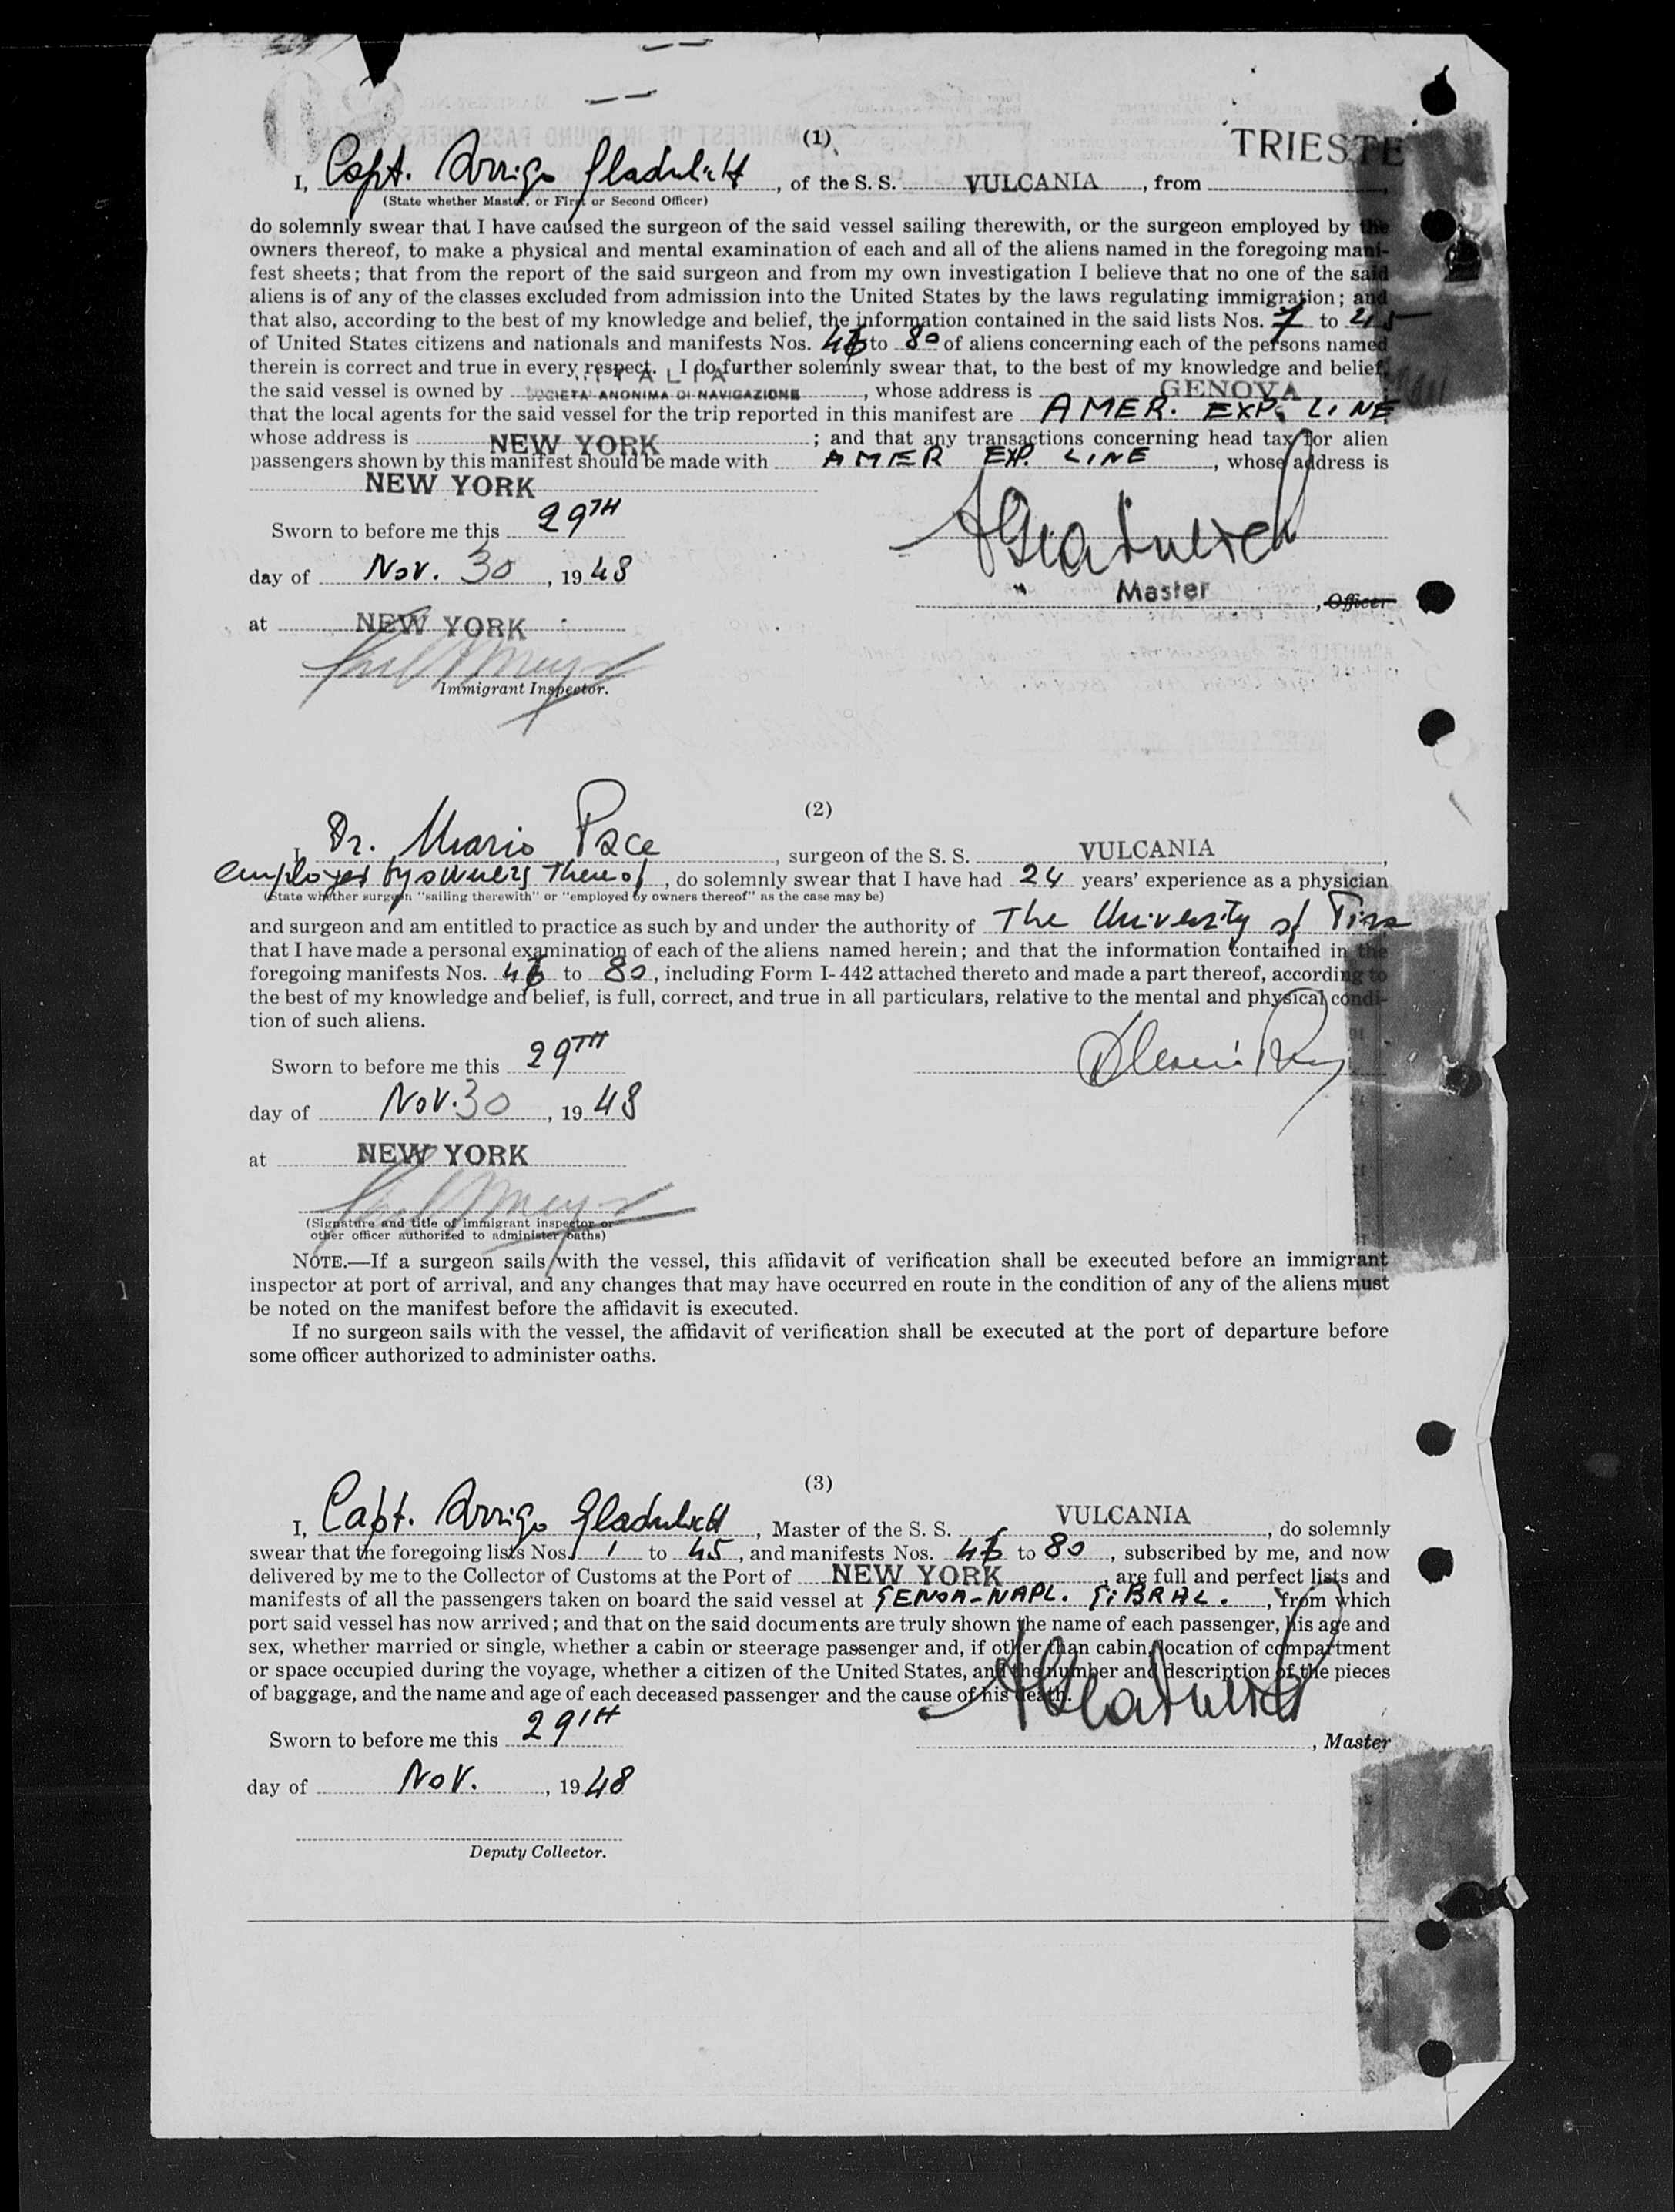 (1)
TRIESTE
I, Capt. Arrigo Gladulich, of the S. S. VULCANIA, from
(State whether Master, or First or Second Officer)
do solemnly swear that I have caused the surgeon of the said vessel sailing therewith, or the surgeon employed by the
owners thereof, to make a physical and mental examination of each and all of the aliens named in the foregoing mani-
fest sheets; that from the report of the said surgeon and from my own investigation I believe that no one of the said
aliens is of any of the classes excluded from admission into the United States by the laws regulating immigration; and
that also, according to the best of my knowledge and belief, the information contained in the said lists Nos. to
of United States citizens and nationals and manifests Nos. 46 to 80 of aliens concerning each of the persons named
therein is correct and true in every respect. I do further solemnly swear that, to the best of my knowledge and belief,
"ITALIA"
the said vessel is owned by SOCIETA' ANONIMA DI NAVIGAZIONE, whose address is GENOVA;
that the local agents for the said vessel for the trip reported in this manifest are AMER. EXP. LINE
whose address is NEW YORK; and that any transactions concerning head tax for alien
passengers shown by this manifest should be made with AMER EXP. LINE, whose address is
NEW YORK
Sworn to before me this 29TH
AGladulich
day of Nov. 30, 1948
Master, Officer
at NEW YORK
Immigrant Inspector.
(2)
I, Dr. Mario Pace, surgeon of the S. S. VULCANIA,
employed by owners thereof, do solemnly swear that I have had 24 years' experience as a physician
(State whether surgeon "sailing therewith" or "employed by owners thereof" as the case may be)
and surgeon and am entitled to practice as such by and under the authority of The University of Pisa
that I have made a personal examination of each of the aliens named herein; and that the information contained in the
foregoing manifests Nos. 46 to 80, including Form I-442 attached thereto and made a part thereof, according to
the best of my knowledge and belief, is full, correct, and true in all particulars, relative to the mental and physical condi-
tion of such aliens.
Sworn to before me this 29TH
day of Nov. 30, 1948
at NEW YORK
(Signature and title of immigrant inspector or
other officer authorized to administer oaths)
NOTE.—If a surgeon sails with the vessel, this affidavit of verification shall be executed before an immigrant
inspector at port of arrival, and any changes that may have occurred en route in the condition of any of the aliens must
be noted on the manifest before the affidavit is executed.
If no surgeon sails with the vessel, the affidavit of verification shall be executed at the port of departure before
some officer authorized to administer oaths.
(3)
I, Capt. Arrigo Gladulich, Master of the S. S. VULCANIA, do solemnly
swear that the foregoing lists Nos. 1 to 45, and manifests Nos. 46 to 80, subscribed by me, and now
delivered by me to the Collector of Customs at the Port of NEW YORK, are full and perfect lists and
manifests of all the passengers taken on board the said vessel at GENOA-NAPL. GIBRAL., from which
port said vessel has now arrived; and that on the said documents are truly shown the name of each passenger, his age and
sex, whether married or single, whether a cabin or steerage passenger and, if other than cabin, location of compartment
or space occupied during the voyage, whether a citizen of the United States, and the number and description of the pieces
of baggage, and the name and age of each deceased passenger and the cause of his death.
AGladulich
Sworn to before me this 29TH
, Master
day of Nov., 1948
Deputy Collector.